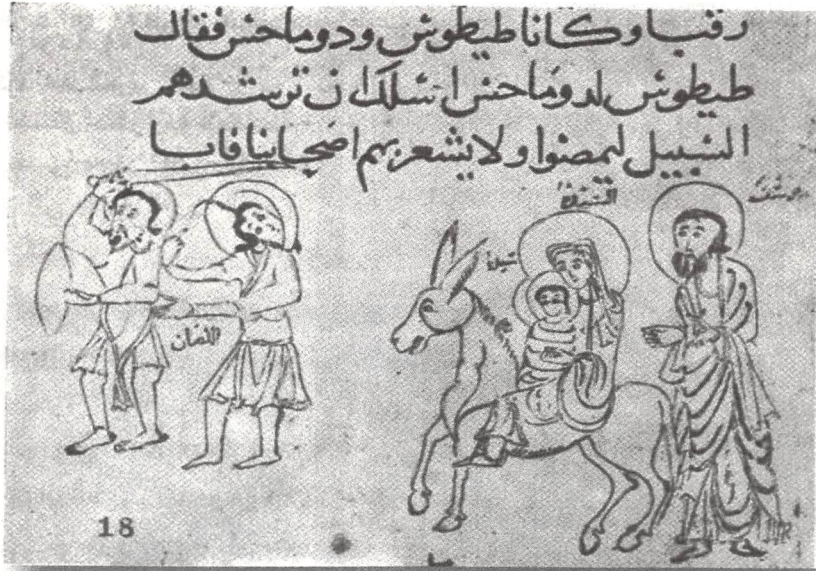 رفقا وكانا طيطوش ودوماحش فقال
طيطوش لدوماحش اسلك ان ترشدهم
السبيل ليمضوا ولا يشعر بهم اصحابنا فابا
السيدة
يوسف
اللصان
18